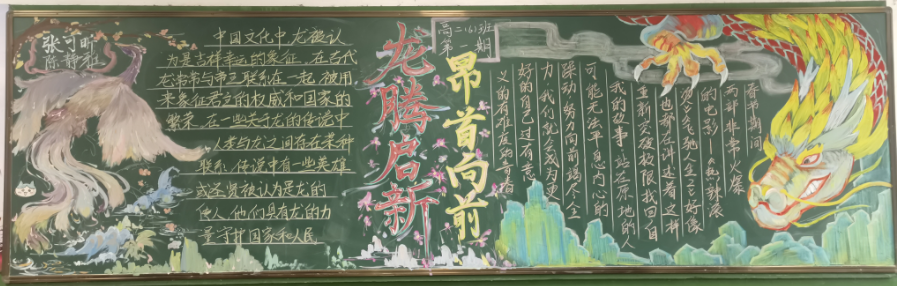 张可昕
陈静雅
中国文化中,龙被认
为是吉祥幸运的象征,在古代
龙常常与帝王联系在一起,被用
来象征君主的权威和国家的
繁荣,在一些关于龙的传说中
人类与龙之间存在某种
联系,传说中有一些英雄
或圣贤被认为是龙的
使人,他们具有龙的力
量守护国家和人民
龙腾启新
昂首向前
高二(6)班
第一期
春节期间
两部非常火爆
的电影——《热辣滚
烫》《飞驰人生2》好像
也都在讲述着这样
重新突破极限找回自
我的故事,站在原地的人
可能无法平息内心的
躁动,努力向前竭尽全
力,我们就会成为更
好的自己过有意
义的有难度的